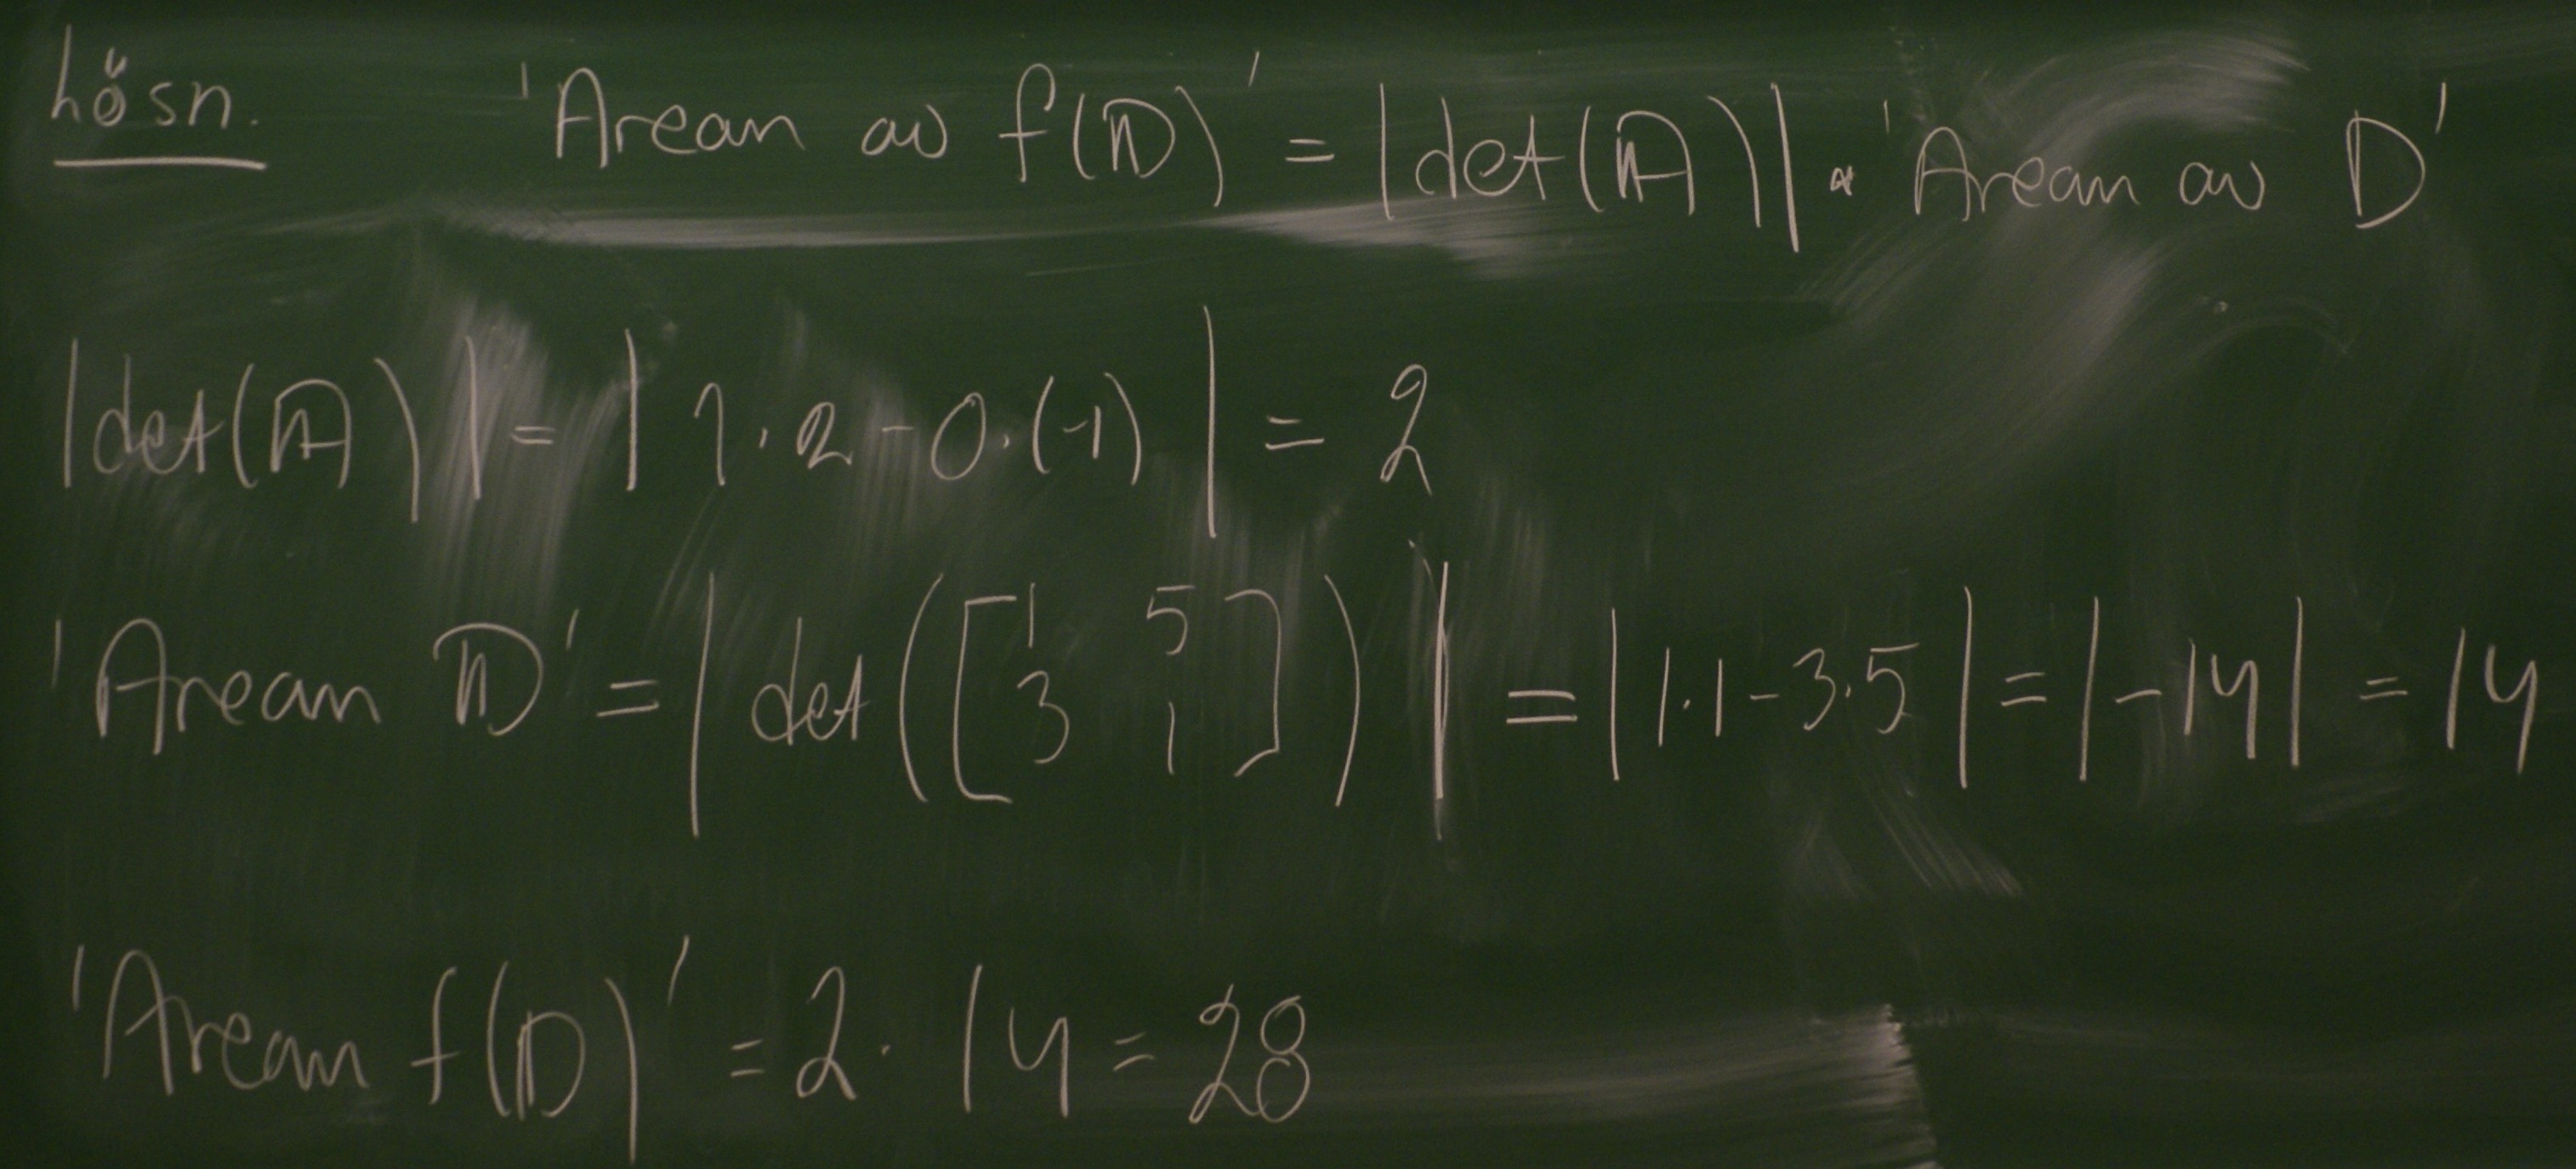 Lösn. 'Arean av f(D)' = |det(A)| · 'Arean av D'
|det(A)| = | 1·2 - 0·(-1) | = 2
'Arean D' = | det([1 5
3 1]) | = |1·1 - 3·5| = |-14| = 14
'Arean f(D)' = 2 · 14 = 28